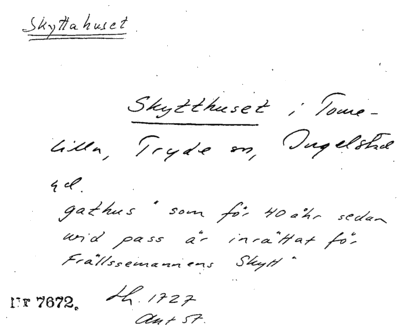 Skyttahuset
Skytthuset i Tome-
lilla, Tryde sn, Ingelstad
hd.
gathus" som för 40 åhr sedan
wid pass är inrättat för
Frällssemannens Skytt"
Nr 7672. Lh. 1727
Ant 57.